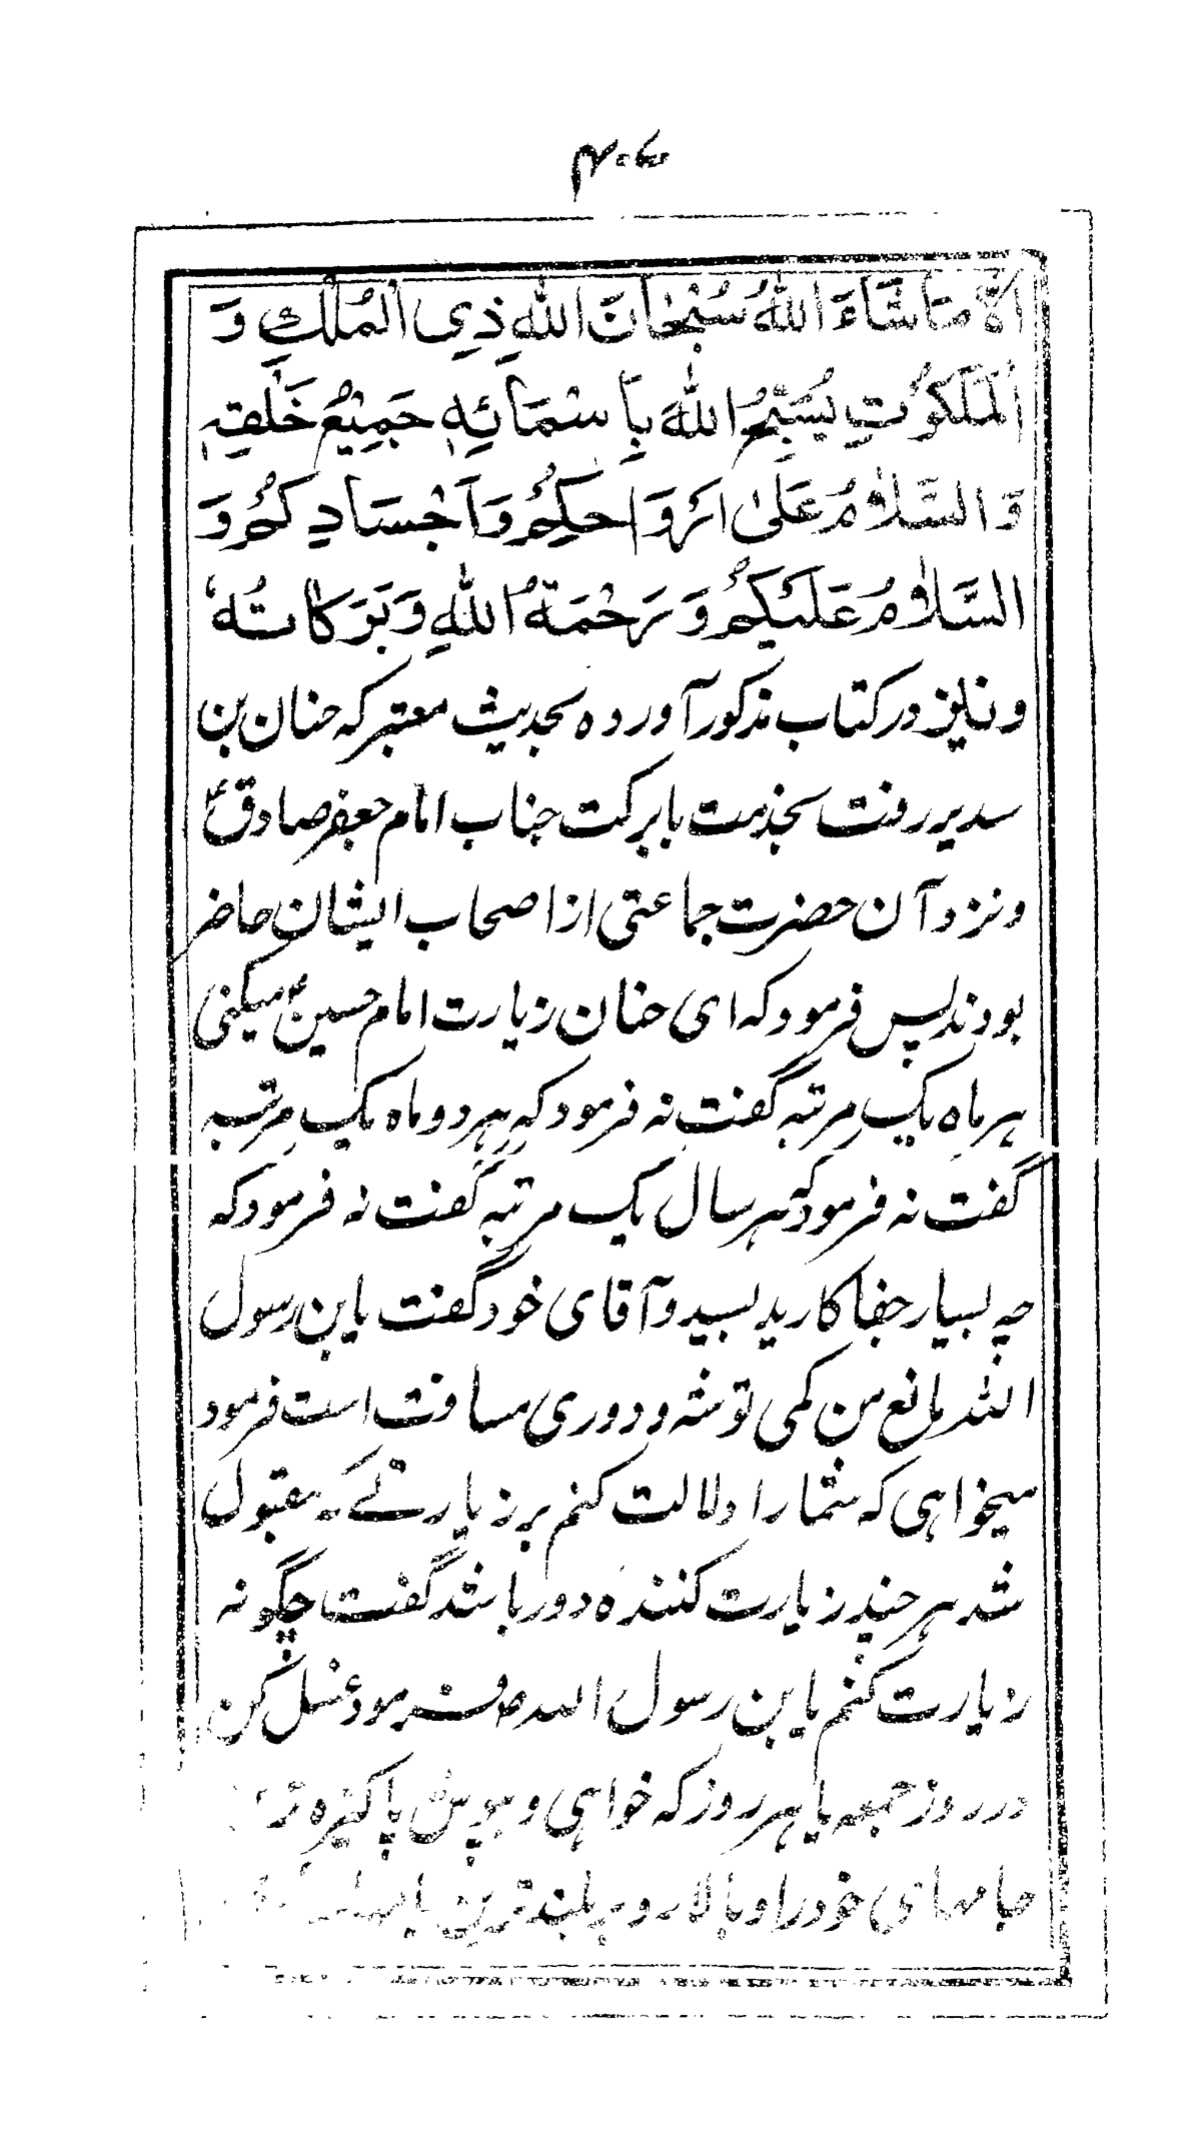 ۴۰۷
اِلّا مَا شَاءَ اللهُ سُبْحَانَ اللهِ ذِی الْمُلْكِ وَ
الْمَلَكُوتِ يُسَبِّحُ اللهَ بِاَسْمَائِهٖ جَمِيْعُ خَلْقِهٖ
وَ السَّلَامُ عَلیٰ اَرْوَاحِكُمْ وَ اَجْسَادِكُمْ وَ
السَّلَامُ عَلَيْكُمْ وَ رَحْمَةُ اللهِ وَ بَرَكَاتُهُ
و نیز در کتاب مذکور آورده بحدیث معتبر که حنان بن
سدیر رفت بخدمت بابرکت جناب امام جعفر صادق ع
و نزد آن حضرت جماعتی از اصحاب ایشان حاضر
بودند پس فرمود که ای حنان زیارت امام حسین ع میکنی
هر ماه یک مرتبه گفت نه فرمود که هر دو ماه یک مرتبه
گفت نه فرمود که هر سال یک مرتبه گفت نه فرمود که
چه بسیار جفا کارید بسید و آقای خود گفت یابن رسول
الله مانع من کمی توشه و دوری مسافت است فرمود
میخواهی که شما را دلالت کنم بر زیارتے که مقبول
شد هر چند زیارت کننده دور باشد گفت چگونه
زیارت کنم یابن رسول الله ص فرمود غسل کن
در روز جمعه یا هر روز که خواهی و بپوش پاکیزه تر
جامهای خود را و بالا رو بر بلندترین